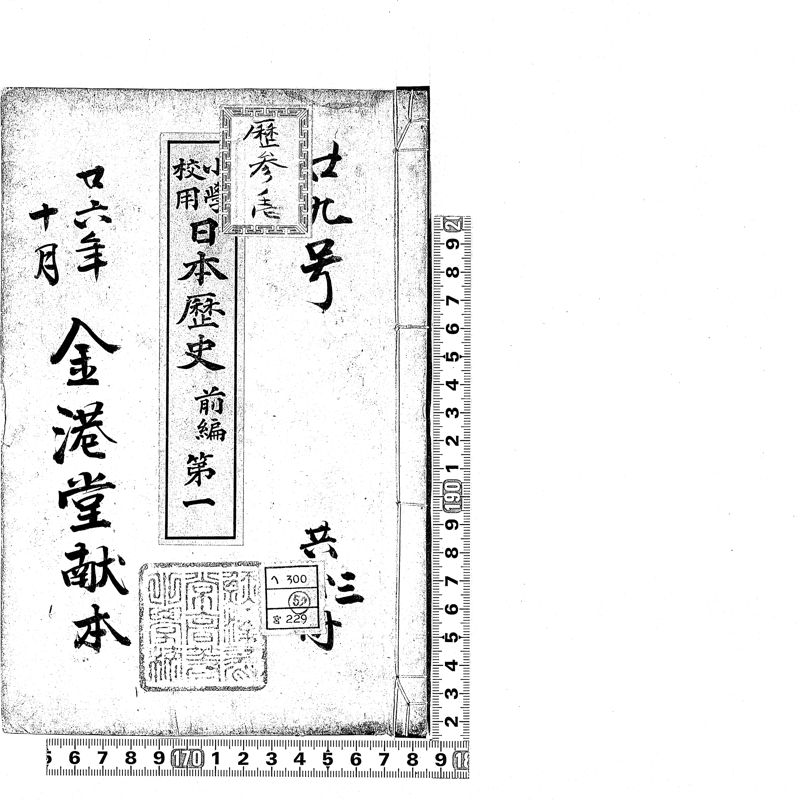 廿九号
共三
歴参
小學
校用
日本歷史 前編 第一
廿六年
十月
金港堂献本
ヘ 300
宮 229
2 3 4 5 6 7 8 9 190 1 2 3 4 5 6 7 8 9
6 7 8 9 170 1 2 3 4 5 6 7 8 9